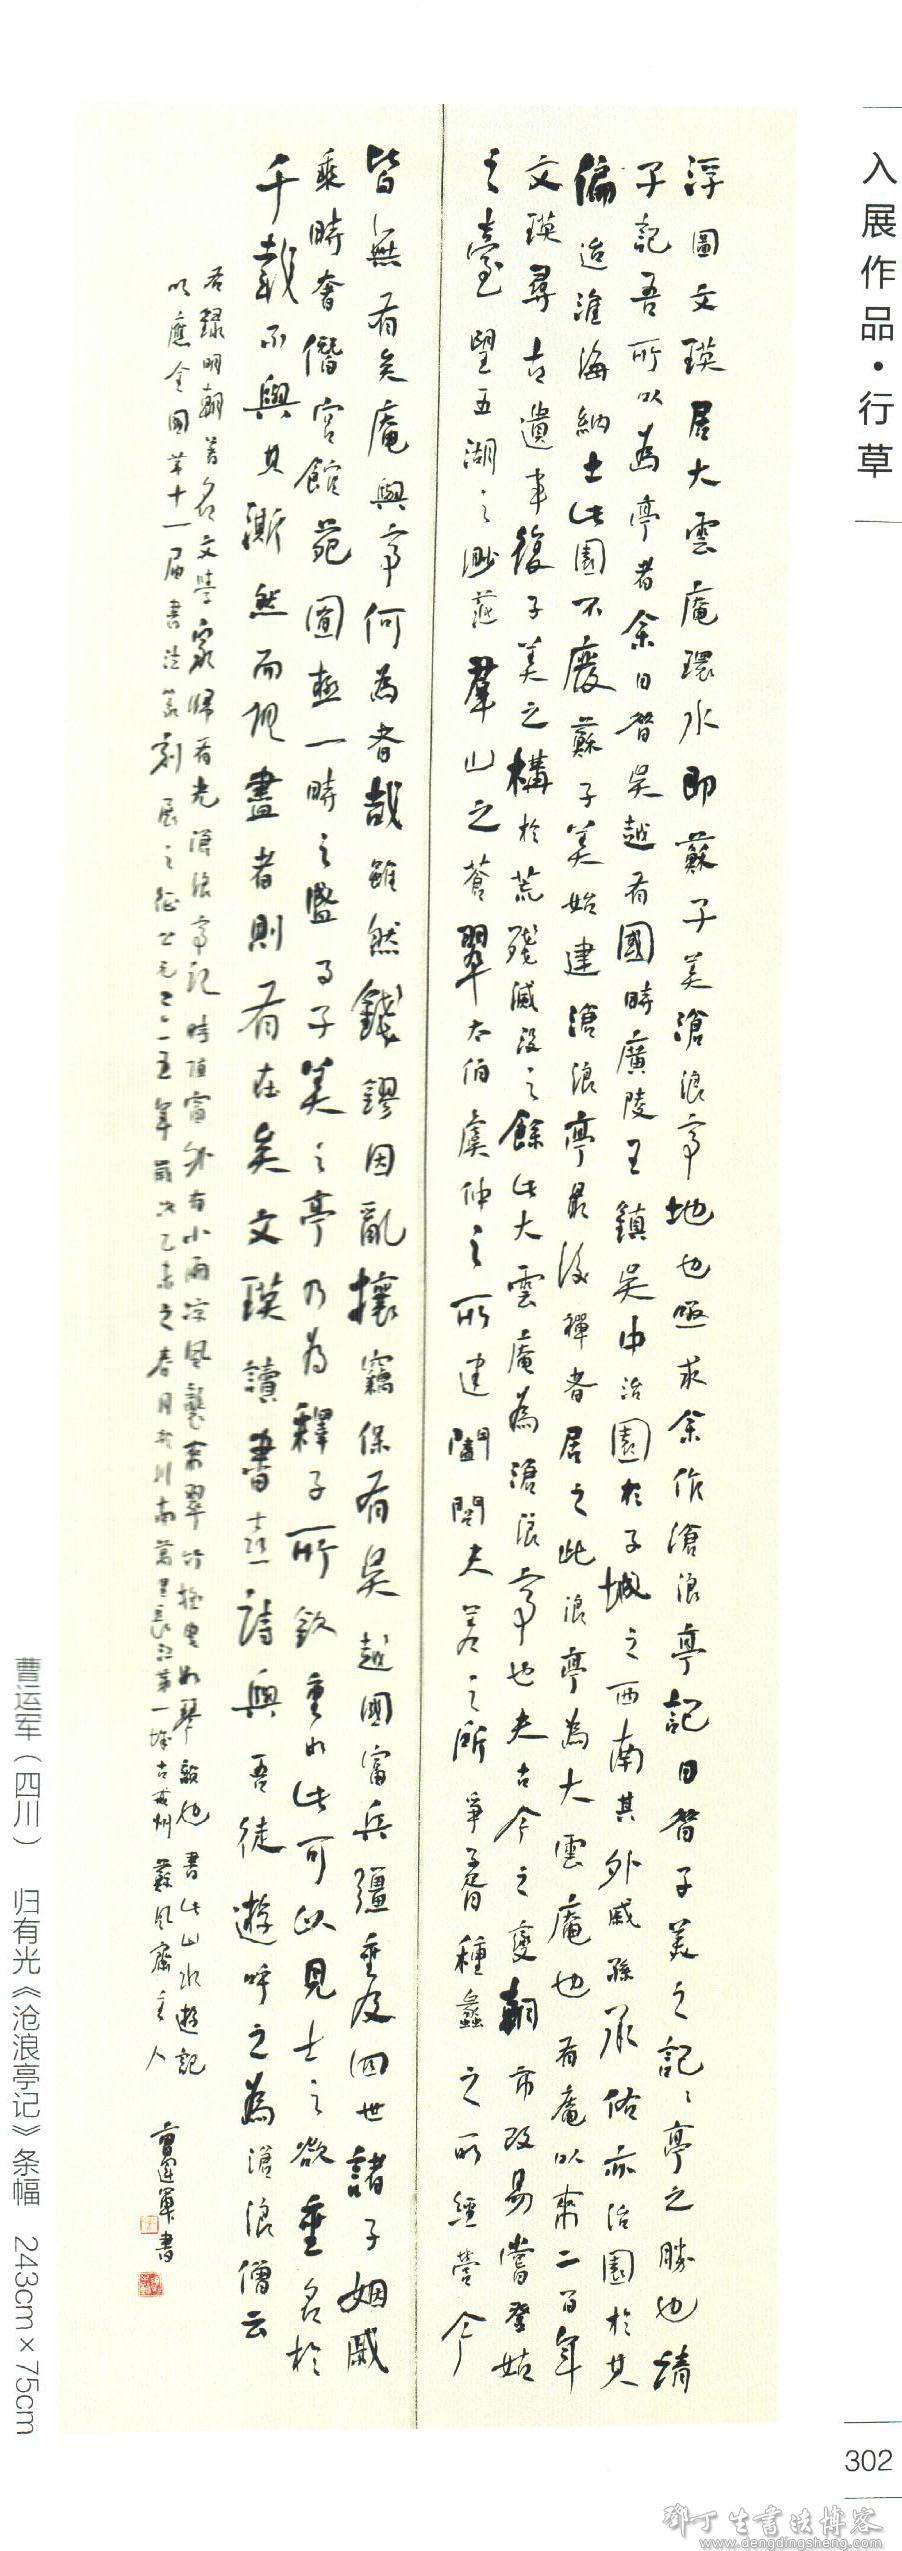 入展作品·行草
浮圖文瑛居大雲庵環水即蘇子美滄浪亭地也亟求余作滄浪亭記曰昔子美之記〻亭之勝也請
子記吾所以為亭者余曰昔吳越有國時廣陵王鎮吳中治園於子城之西南其外戚孫承佑亦治園於其
偏迨淮海納土此園不廢蘇子美始建滄浪亭最後禪者居之此浪亭為大雲庵也有庵以來二百年
文瑛尋古遺事復子美之構於荒殘滅沒之餘此大雲庵為滄浪亭也夫古今之變朝市改易嘗登姑
之臺望五湖之渺茫羣山之蒼翠太伯虞仲之所建闔閭夫差之所爭子胥種蠡之所經營今
皆無有矣庵與亭何為者哉雖然錢鏐因亂攘竊保有吳越國富兵彊垂及四世諸子姻戚
乘時奢僭宮館苑囿極一時之盛而子美之亭乃為釋子所欽重如此可以見士之欲垂名於
千載不與其澌然而俱盡者則有在矣文瑛讀書喜詩與吾徒遊呼之為滄浪僧云
右錄明朝著名文學家歸有光滄浪亭記時值窗外有小雨涼風襲來翠竹搖曳如琴韻也書此山水遊記
以應全國第十一屆書法篆刻展之征公元二〇一五年歲次乙未之春月於川南萬里長江第一城古戎州蘇風齋主人
曹運軍書
曹运军（四川） 归有光《沧浪亭记》条幅 243cm×75cm
302
鄧丁生書法博客
www.dengdingsheng.com